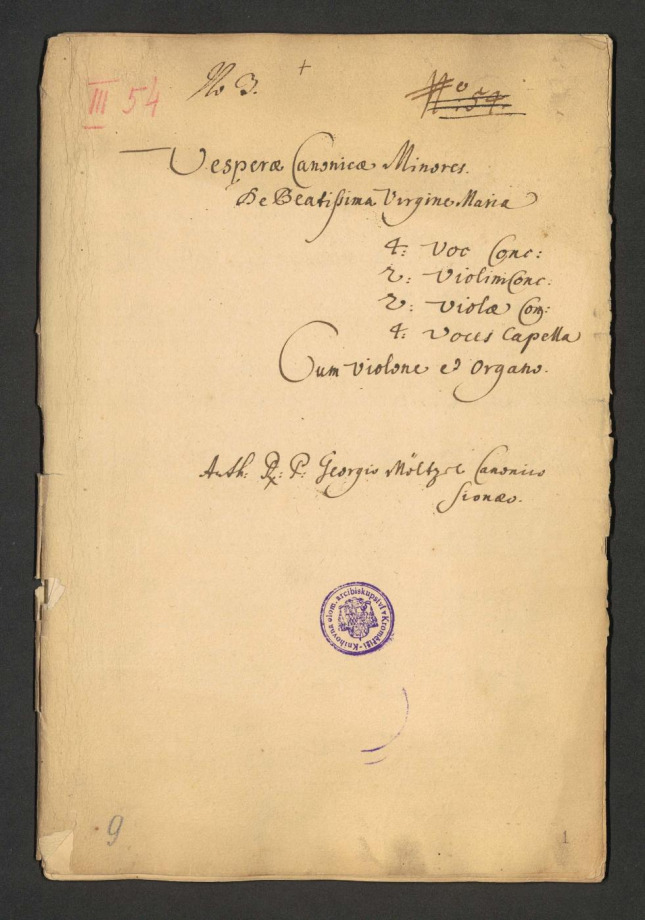 III 54
No 3. +
No 54.
Vesperæ Canonicæ Minores.
De Beatissima Virgine Maria
4: Voc Conc:
2: Violini Conc:
2: Violæ Con:
4: Voces Capella
Cum Violone et Organo.
A Ath: Rx: P: Georgio Möltzel Canonico
Sionæo.
Knihovna olom. arcibiskupství v Kroměříži
9
1